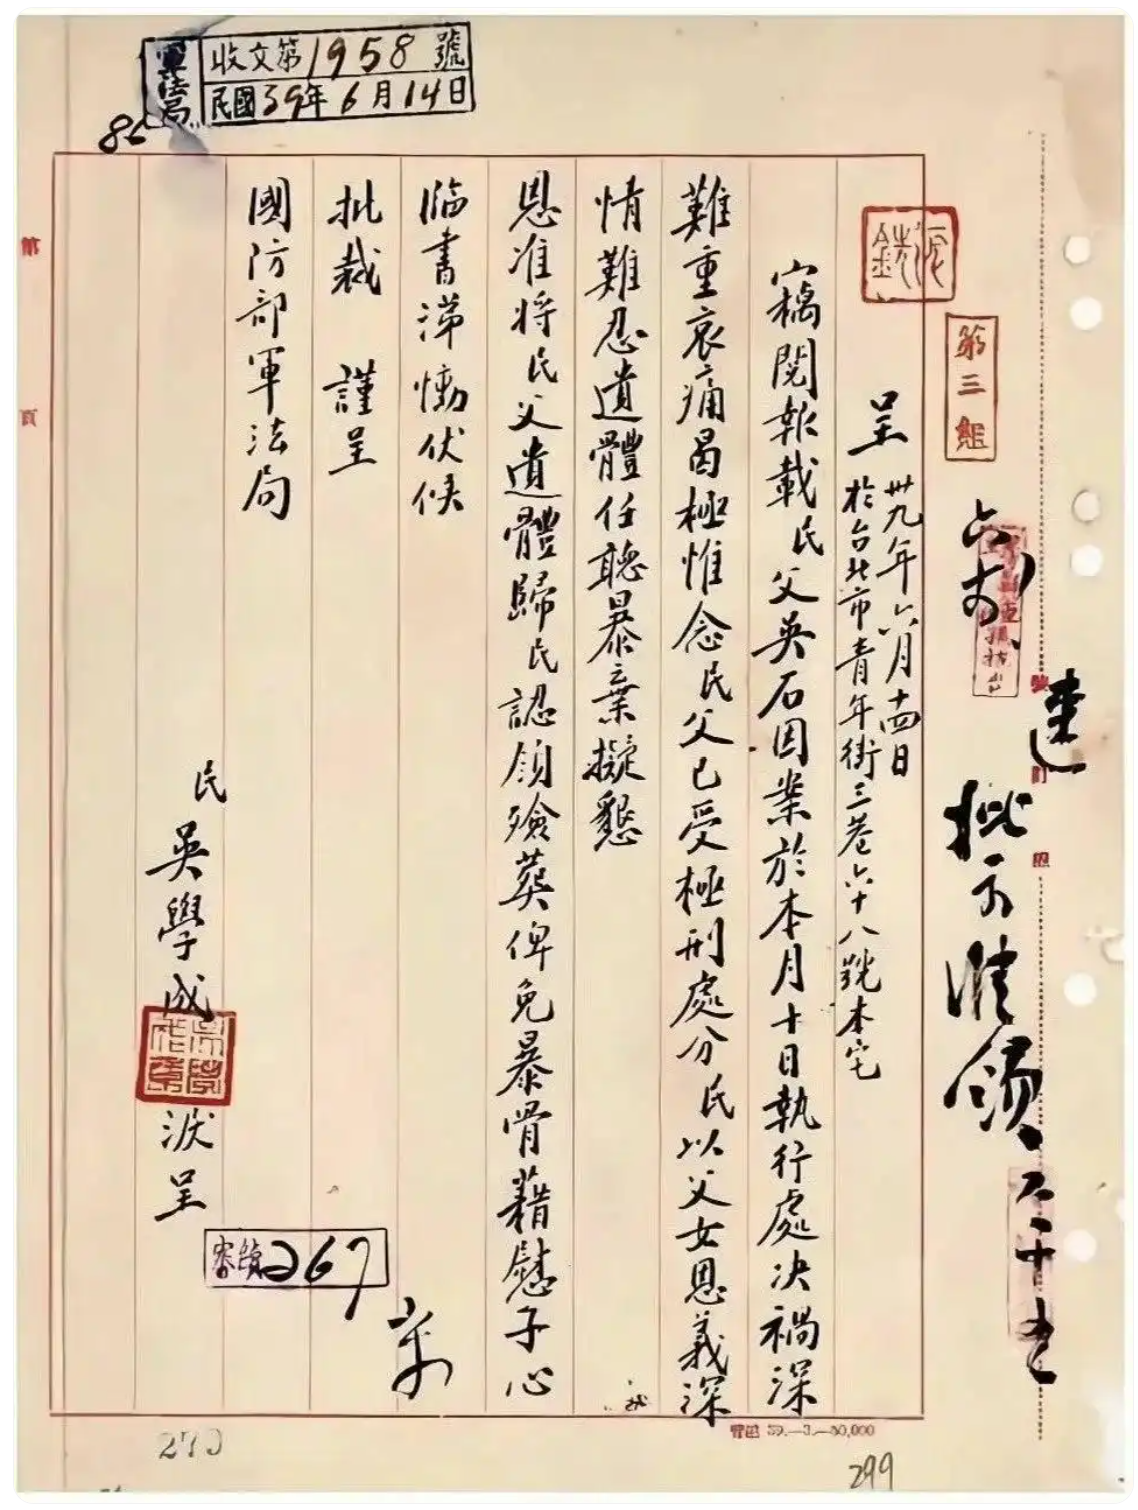 軍法局
收文第1958號
民國39年6月14日
第三組
呈 卅九年六月十四日
於台北市青年街三巷六十八號本宅
竊閱報載民父吳石因案於本月十日執行處決禍深
難重哀痛曷極惟念民父已受極刑處分民以父女恩義深
情難忍遺體任聽暴棄擬懇
恩准將民父遺體歸民認領殮葬俾免暴骨藉慰子心
臨書涕慟伏候
批裁 謹呈
國防部軍法局
民 吳學成 淚呈
批示准領
267
第
頁
270
299